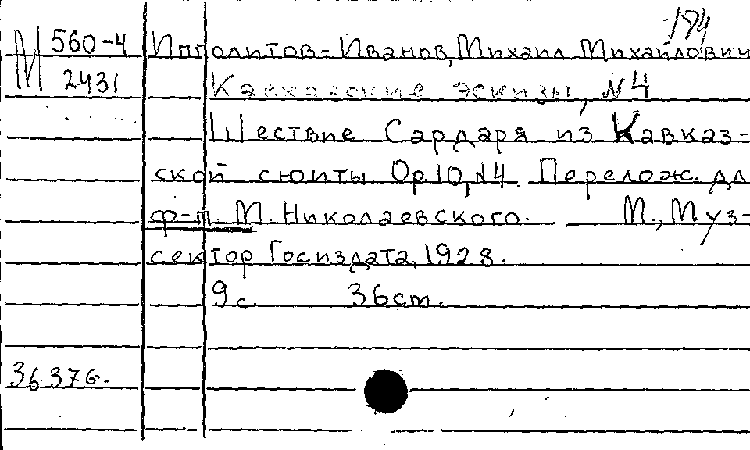 194
М 560-4 Ипполитов-Иванов, Михаил Михайлович
2431 Кавказские эскизы, №4
Шествие Сардаря из Кавказ-
ской сюиты Op10, №4. Перелож. дл
ф-п. М. Николаевского. М., Муз-
сектор Госиздата, 1928.
9 с. 36cm.
36376.